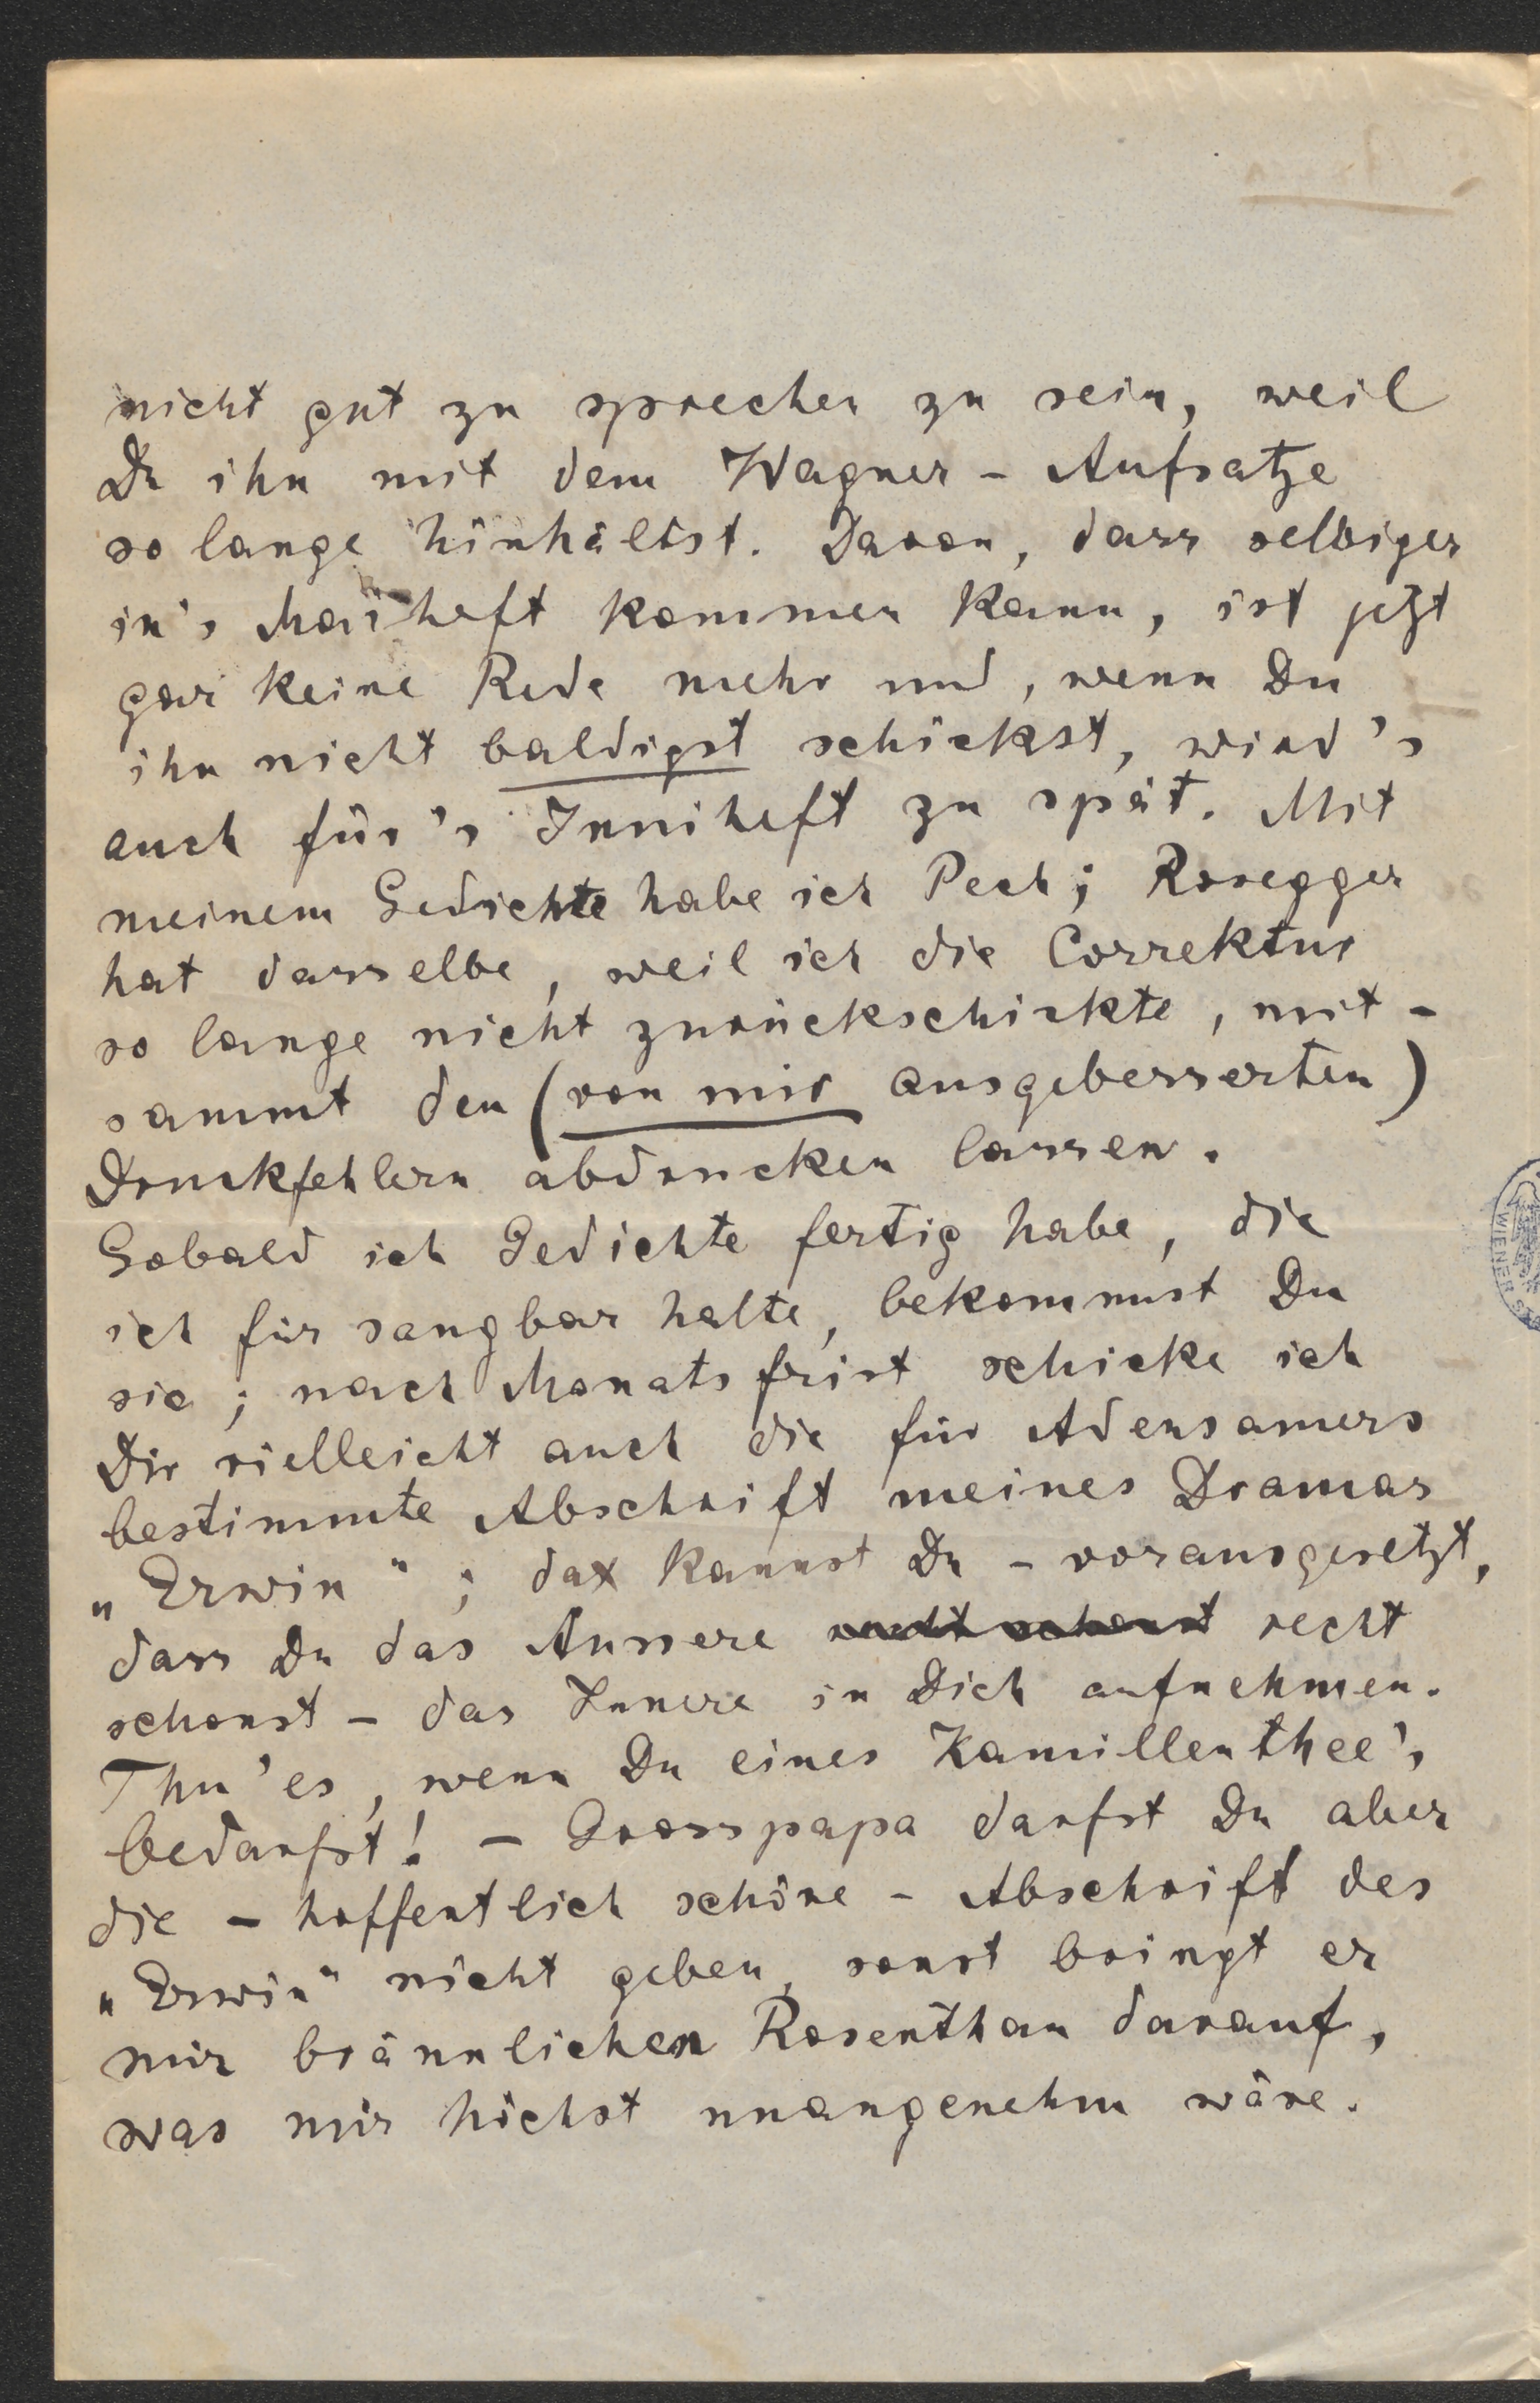 nicht gut zu sprechen zu sein, weil
Du ihn mit dem Wagner - Aufsatze
so lange hinhältst. Davon, dass selbiger
in's Maiheft kommen kann, ist jetzt
gar keine Rede mehr und, wenn Du
ihn nicht baldigst schickst, wird's
auch für's Juniheft zu spät. Mit
meinem Gedichte habe ich Pech; Rosegger
hat dasselbe, weil ich die Correktur
so lange nicht zurückschickte, mit-
sammt den (von mir ausgebesserten)
Druckfehlern abdrucken lassen.
Sobald ich Gedichte fertig habe, die
ich für sangbar halte, bekommst Du
sie; nach Monatsfrist schicke ich
Dir vielleicht auch die für Adensamers
bestimmte Abschrift meines Dramas
„Erwin"; da kannst Du - vorausgesetzt,
dass Du das Äussere recht
schonst - das Innere in Dich aufnehmen.
Thu' es, wenn Du eines Kamillenthee's
bedarfst! - Grosspapa darfst Du aber
die - hoffentlich schöne - Abschrift des
„Erwin" nicht geben, sonst bringt er
mir bräunlichen Rosenthau darauf,
was mir höchst unangenehm wäre.
WIENER